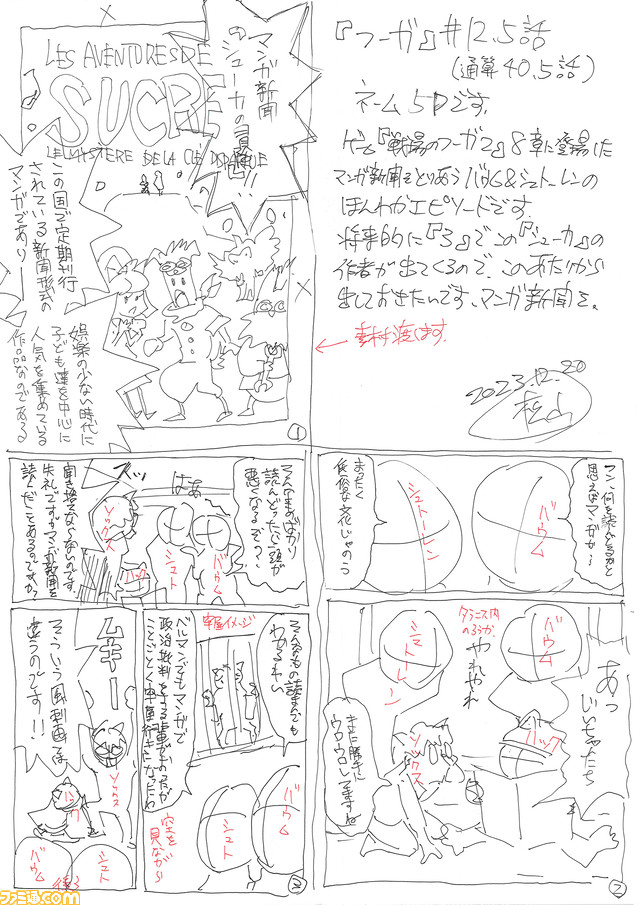 『フーガ』#12.5話
(通算40.5話)
ネーム5Pです。
ゲーム『戦場のフーガ2』8章に登場した
マンガ新聞をとりあうバウム&シュトーレンの
ほんわかエピソードです。
将来的に『3』でこの『シューカ』の
作者が出てくるので、このあたりから
出しておきたいんです、マンガ新聞を。
2023.12.20
LES AVENTURES DE
SUCRE
マンガ新聞
『シューカの冒険』!!
この国で定期刊行
されている新聞形式の
マンガであり――
娯楽の少ない時代に
子ども達を中心に
人気を集めている
作品なのである
1
マンガか…
まったく
低俗な文化じゃのう
バウム
シュトーレン
タラニス内
へろうか
バウム
シュトーレン
やれやれ
あっ
じいちゃんたち
ハック
ソックス
また勝手に
ウロウロしてますね
2
そんなもんばかり
読んどったら頭が
悪くなるぞっ…
はぁ
ズッ
ソックス
ハック
シュト
バウム
聞き捨てならないのです
失礼ですがマンガ新聞を
読んだことあるのですか?
そんなもの読まんでも
わかるわい
牢屋イメージ
ベルマンでもマンガで
政治批判をする輩がおったが
ことごとく牢屋行きになったわ
空を
見ながら
シュト
バウム
3
ムキー
そういう風刺画とは
違うのです!!
ソックス
ハック
バウム
シュト
後ろ
ファミ通.com